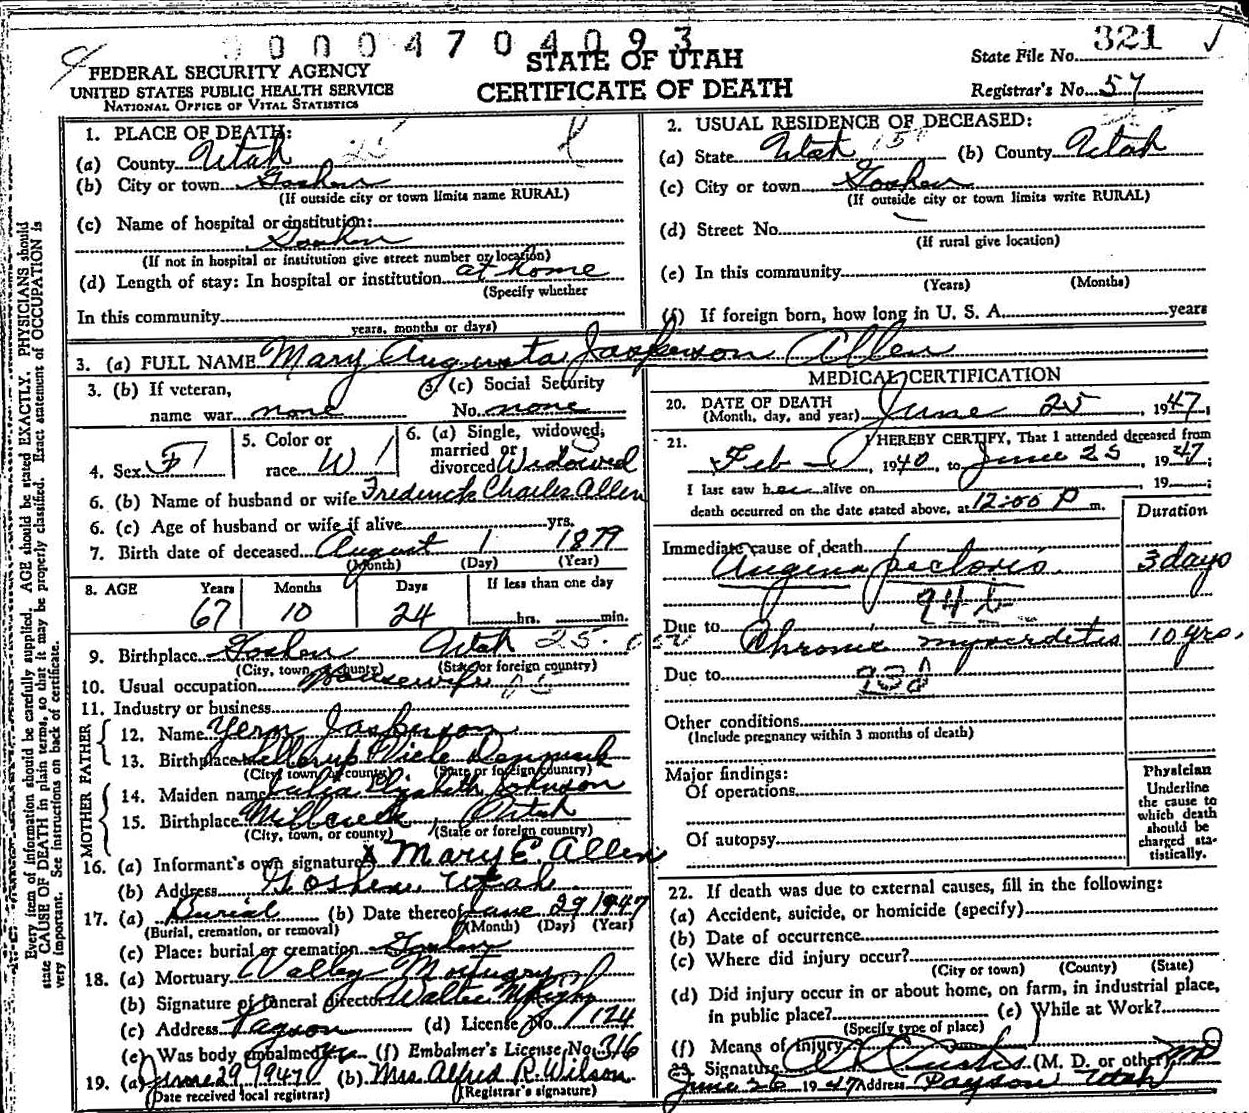 0 0 0 0 4 7 0 4 0 9 3
STATE OF UTAH
CERTIFICATE OF DEATH
FEDERAL SECURITY AGENCY
UNITED STATES PUBLIC HEALTH SERVICE
NATIONAL OFFICE OF VITAL STATISTICS
State File No. 321
Registrar's No. 57
Every item of information should be carefully supplied. AGE should be stated EXACTLY. PHYSICIANS should
state CAUSE OF DEATH in plain terms, so that it may be properly classified. Exact statement of OCCUPATION is
very important. See instructions on back of certificate.
1. PLACE OF DEATH:
(a) County Utah 25
(b) City or town Goshen
(If outside city or town limits name RURAL)
(c) Name of hospital or institution:
Goshen
(If not in hospital or institution give street number or location)
(d) Length of stay: In hospital or institution at home
(Specify whether
In this community
years, months or days)
2. USUAL RESIDENCE OF DECEASED:
(a) State Utah (b) County Utah
(c) City or town Goshen
(If outside city or town limits write RURAL)
(d) Street No.
(If rural give location)
(e) In this community
(Years) (Months)
(f) If foreign born, how long in U. S. A. years
3. (a) FULL NAME Mary Augusta Jasperson Allen
3. (b) If veteran,
name war none
3. (c) Social Security
No. none
4. Sex F
5. Color or
race W
6. (a) Single, widowed,
married or
divorced Widowed
6. (b) Name of husband or wife Frederick Charles Allen
6. (c) Age of husband or wife if alive yrs.
7. Birth date of deceased August 1 1879
(Month) (Day) (Year)
8. AGE Years Months Days If less than one day
67 10 24 hrs. min.
9. Birthplace Goshen Utah 25
(City, town, county) (State or foreign country)
10. Usual occupation Housewife
11. Industry or business
FATHER
12. Name Yern Jasperson
13. Birthplace Denmark
(City, town or county) (State or foreign country)
MOTHER
14. Maiden name Julia Elizabeth Johnson
15. Birthplace Millcreek Utah
(City, town, or county) (State or foreign country)
16. (a) Informant's own signature X Mary E. Allen
(b) Address Goshen Utah
17. (a) Burial (b) Date thereof June 29 1947
(Burial, cremation, or removal) (Month) (Day) (Year)
(c) Place: burial or cremation Goshen
18. (a) Mortuary Valley Mortuary
(b) Signature of funeral director Walter
(c) Address Payson (d) License No. 1124
(e) Was body embalmed? (f) Embalmer's License No. 316
19. (a) June 29, 1947 (b) Mrs. Alfred R. Wilson
(Date received local registrar) (Registrar's signature)
MEDICAL CERTIFICATION
20. DATE OF DEATH
(Month, day, and year) June 25, 1947;
21. I HEREBY CERTIFY, That I attended deceased from
Feb, 1940, to June 25, 1947;
I last saw her alive on , 19 ;
death occurred on the date stated above, at 12:00 P m.
Duration
Immediate cause of death
Angina pectoris 3 days
94b
Due to Chronic myocarditis 10 yrs.
Due to 93d
Other conditions
(Include pregnancy within 3 months of death)
Major findings:
Of operations
Of autopsy
Physician
Underline
the cause to
which death
should be
charged sta-
tistically.
22. If death was due to external causes, fill in the following:
(a) Accident, suicide, or homicide (specify)
(b) Date of occurrence
(c) Where did injury occur?
(City or town) (County) (State)
(d) Did injury occur in or about home, on farm, in industrial place,
in public place? (e) While at Work?
(Specify type of place)
(f) Means of injury
23. Signature Curtis (M. D. or other) MD
June 26 1947 Address Payson Utah